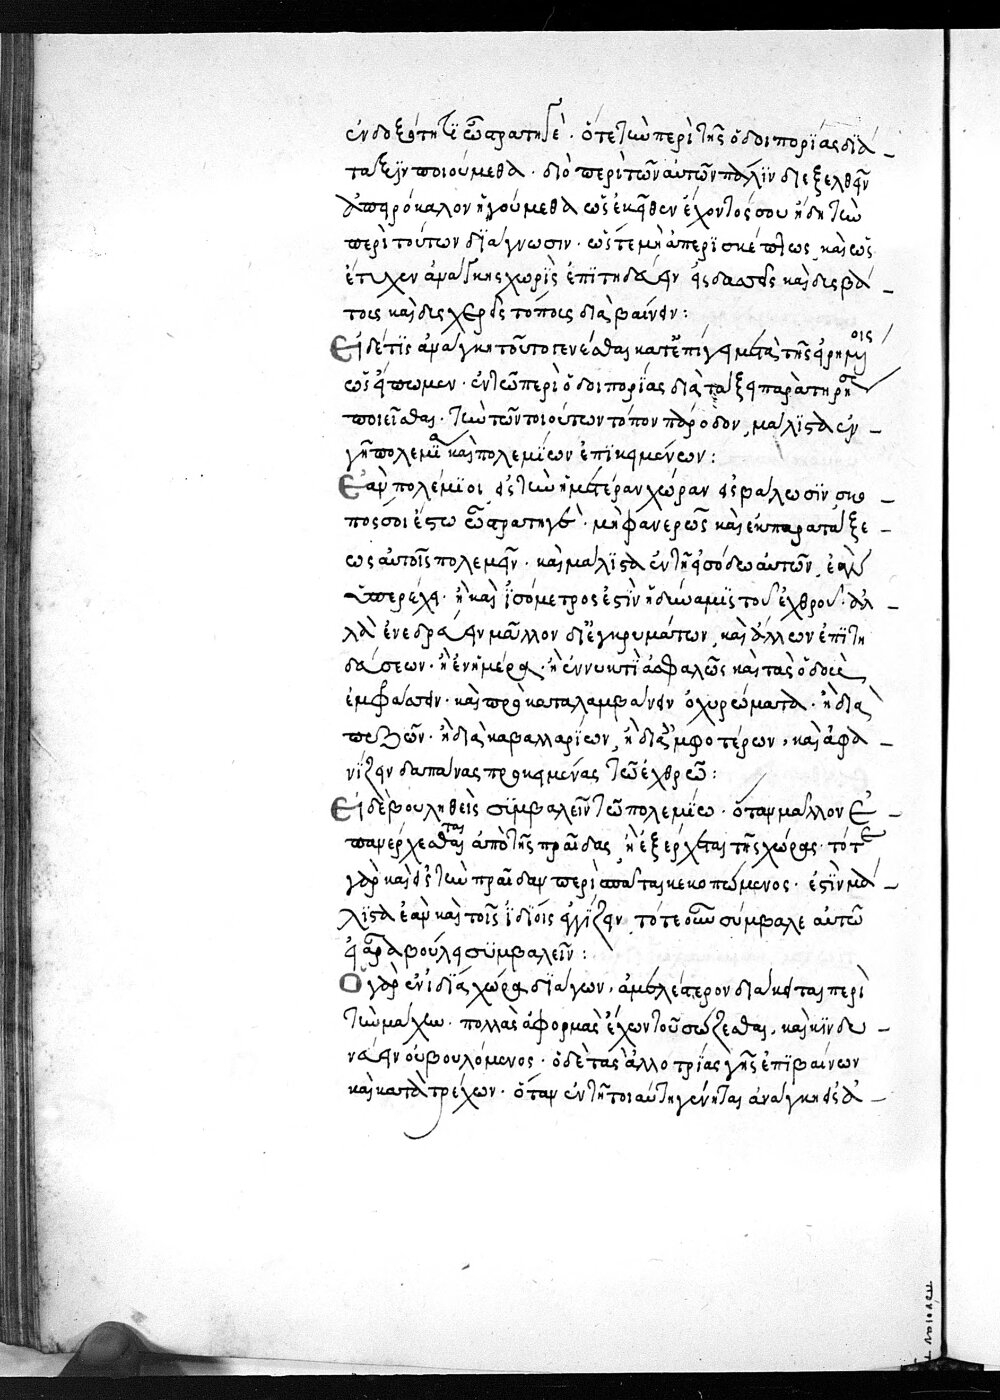 ἐνδοξότητι ὦ στρατηγέ· ὅτε τὴν περὶ τῆς ὁδοιπορίας διά
ταξιν ποιούμεθα· διὸ περὶ τῶν αὐτῶν πάλιν διεξελθεῖν
ἀπειρόκαλον ἡγούμεθα ὡς ἐκεῖθεν ἔχοντός σου ἤδη τὴν
περὶ τούτων διάγνωσιν· ὥστε μὴ ἀπερισκέπτως, καὶ ὡς
ἔτυχεν ἀνάγκης χωρὶς ἐπιτηδεύειν εἰς δασεῖς καὶ δυσβά
τοις καὶ δυσχερέσι τόποις διαβαίνειν:
Εἰ δέ τις ἀνάγκη τοῦτο γενέσθαι κατεπίγει μετὰ τῆς εἰρημένοις
ὡς εἴπωμεν· ἐν τῷ περὶ ὁδοιπορίας διατάξει παρατηρήσεως
ποιεῖσθαι· τὴν τῶν τοιούτων τόπον πάροδον, μάλιστα ἐν
γῇ πολεμίᾳ καὶ πολεμίων ἐπικειμένων:
Ἐὰν πολέμιοι εἰς τὴν ἡμετέραν χώραν εἰσβάλωσιν σκο
πός σοι ἔστω ὦ στρατηγέ· μὴ φανερῶς καὶ ἐκ παρατάξε
ως αὐτοῖς πολεμεῖν· καὶ μάλιστα ἐν τῇ εἰσόδω αὐτῶν, ἐὰν
ὑπερέχει· ἢ καὶ ἰσόμετρος ἐστὶν ἡ δύναμις τοῦ ἐχθροῦ· ἀλ
λὰ ἐνεδρεύειν μᾶλλον δι' ἐγκρυμάτων, καὶ ἄλλων ἐπιτη
δεύσεων· ἢ ἐν ἡμέρα· ἢ ἐν νυκτὶ ἀσφαλῶς καὶ τὰς ὁδοὺς
ἐμφράττειν· καὶ προκαταλαμβάνειν ὀχυρώματα· ἢ διὰ
πεζῶν· ἢ διὰ καβαλλαρίων, ἢ δι' ἀμφοτέρων, καὶ ἀφα
νίζειν δαπάνας προκειμένας τῶ ἐχθρῶ:
Εἰ δὲ βουληθεὶς συμβαλεῖν τῶ πολεμίω· ὅταν μᾶλλον ἐ
πανέρχεσθαι ἀπὸ τῆς πραίδας, ἢ ἐξέρχεται τῆς χώρας· τότε
γὰρ καὶ εἰς τὴν πραίδαν περισπᾶται κεκοπώμενος· ἔστιν μά
λιστα ἐὰν καὶ τοῖς ἰδίοις ἐγγίζειν, τότε οὖν σύμβαλε αὐτῶ
εἰ ἄρα βούλει συμβαλεῖν:
Ὁ γὰρ ἐν ἰδίᾳ χώρα διάγων, ἀμελέστερον διάκειται περὶ
τὴν μάχην· πολλὰς ἀφορμὰς ἔχων τοῦ σώζεσθαι, καὶ κινδυ
νεύειν οὐ βουλόμενος· ὁ δὲ τὰς ἀλλοτρίας γῆς ἐπιβαίνων
καὶ κατατρέχων· ὅταν ἐν τῇ τοιαύτη γένηται ἀνάγκη εἰς ἀ